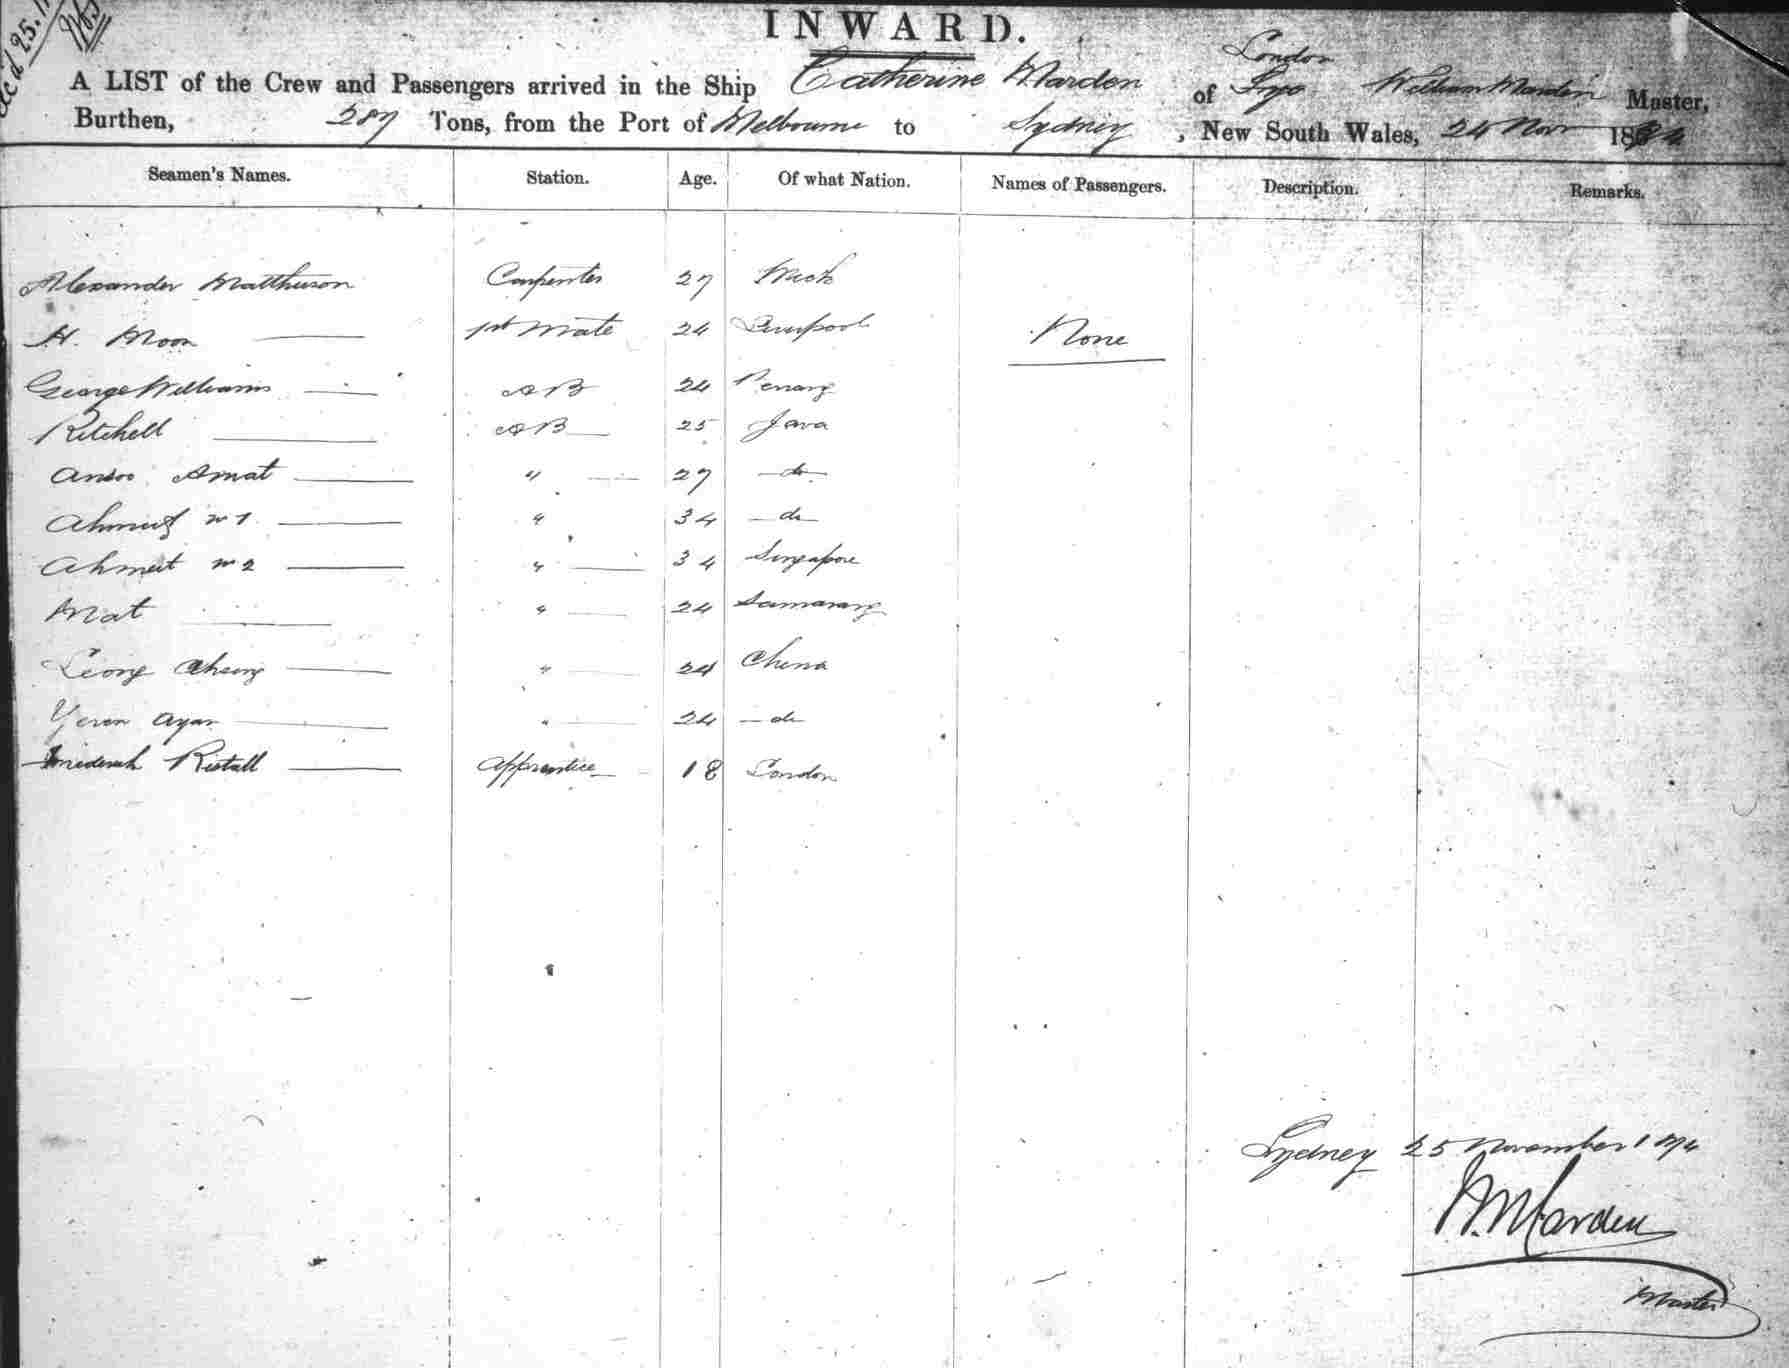 INWARD.
London
A LIST of the Crew and Passengers arrived in the Ship Catherine Marden of William Marden Master,
Burthen, 287 Tons, from the Port of Melbourne to Sydney, New South Wales, 24 Nov 1874
Seamen's Names. Station. Age. Of what Nation. Names of Passengers. Description. Remarks.
Alexander Matthewson Carpenter 27 Wick
H. Moon 1st Mate 24 Liverpool None
George Williams AB 24 Penang
Kitchell AB 25 Java
Amat " 27 do
Ahmet no 1 " 34 do
Ahmet no 2 " 34 Singapore
Mat " 24 Samarang
Leong Cheong " 24 China
Ayan " 24 do
Ristall Apprentice 18 London
Sydney 25 November 1874
W. Marden
Master